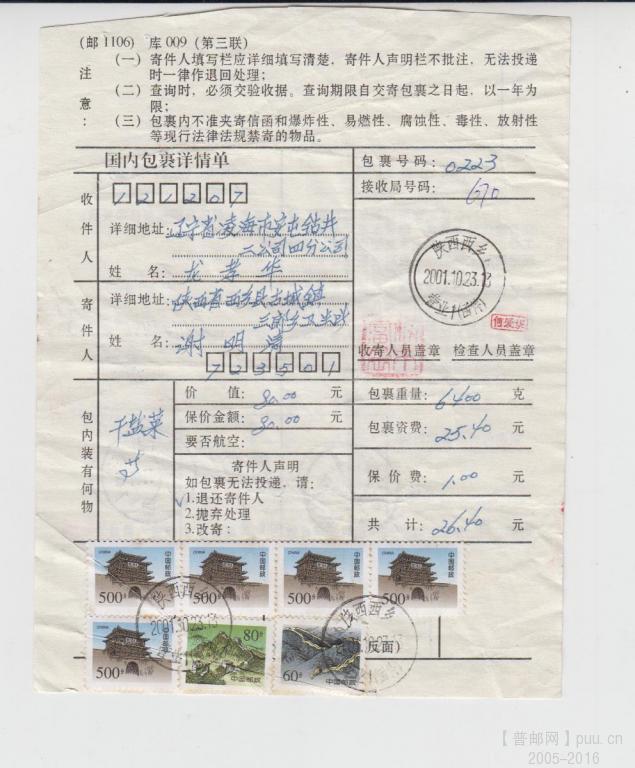 (邮1106) 库009 (第三联)
注意:
(一) 寄件人填写栏应详细填写清楚，寄件人声明栏不批注，无法投递
时一律作退回处理;
(二) 查询时，必须交验收据。查询期限自交寄包裹之日起，以一年为
限;
(三) 包裹内不准夹寄信函和爆炸性、易燃性、腐蚀性、毒性、放射性
等现行法律法规禁寄的物品。
国内包裹详情单
包裹号码: 0223
接收局号码: 670
收件人
121207
详细地址: 辽宁省凌海市安屯钻井
二公司四分公司
姓 名: 龙孝华
寄件人
详细地址: 陕西省西乡县古城镇
三郎乡
姓 名: 谢明清
723501
陕西西乡
2001.10.23.13
收寄人员盖章 检查人员盖章
包内装有何物
干盐菜
价 值: 80.00 元
保价金额: 80.00 元
要否航空:
寄件人声明
如包裹无法投递，请:
✓1.退还寄件人
2.抛弃处理
3.改寄:
包裹重量: 6400 克
包裹资费: 25.40 元
保 价 费: 1.00 元
共 计: 26.40 元
CHINA 中国邮政 500分
CHINA 中国邮政 500分
CHINA 中国邮政 500分
CHINA 中国邮政 500分
陕西西乡
2001.10.23.13
陕西西乡
500分
80分 中国邮政
60分 中国邮政
反面)
【普邮网】puu.cn
2005-2016